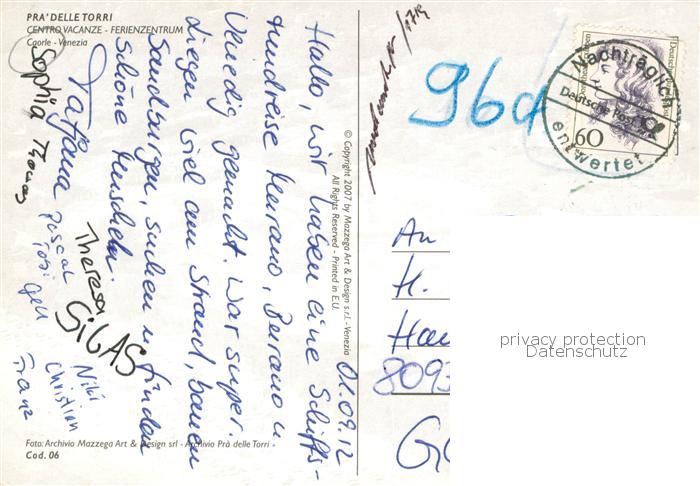 PRA' DELLE TORRI
CENTRO VACANZE - FERIENZENTRUM
Caorle - Venezia
01.09.12
Hallo, wir haben eine Schiffs-
rundreise Murano, Burano u.
Venedig gemacht. War super.
Liegen viel am Strand, bauen
Sandburgen, suchen u. finden
schöne Muscheln.
Tatjana
Sophia Thomas
Pascal
Theresa
GiGAS
Niki
Christian
Franz
Foto: Archivio Mazzega Art & Design srl - Archivio Prà delle Torri -
Cod. 06
© Copyright 2007 by Mazzega Art & Design s.r.l. - Venezia
All Rights Reserved - Printed in E.U.
96d
Nachträglich
Deutsche Post
entwertet
60
An
H.
Hau
8093
privacy protection
Datenschutz